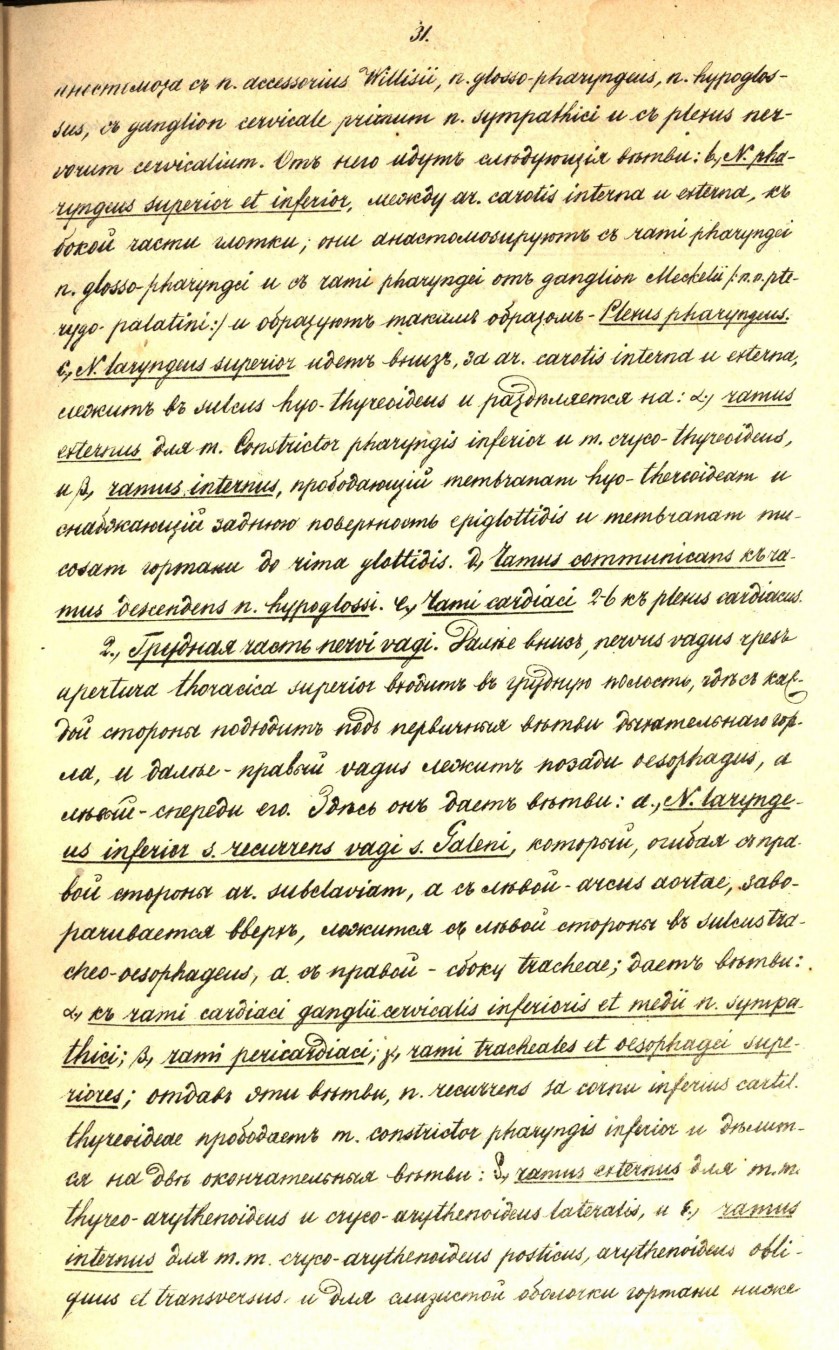 31.
анастомоза съ n. accessorius Willisii, n. glosso-pharyngeus, n. hypoglos-
sus, съ ganglion cervicale primum n. sympathici и съ plexus ner-
vorum cervicalium. Отъ него идутъ слѣдующія вѣтви: b, N. pha-
ryngeus superior et inferior, между ar. carotis interna и externa, къ
бокой части глотки; они анастомозируютъ съ rami pharyngei
n. glosso-pharyngei и съ rami pharyngei отъ ganglion Meckelii /: n.n. pte-
rygo-palatini :/ и образуютъ такимъ образомъ - Plexus pharyngeus.
c, N. laryngeus superior идетъ внизъ, за ar. carotis interna и externa,
лежитъ въ sulcus hyo-thyreoideus и раздѣляется на: α, ramus
externus для m. Constrictor pharyngis inferior и m. cryco-thyreoideus,
и β, ramus internus, прободающій membranam hyo-thereoideam и
снабжающій заднюю поверхность epiglottidis и membranam mu-
cosam гортани до rima glottidis. d, Ramus communicans къ ra-
mus descendens n. hypoglossi. e, Rami cardiaci 2-6 къ plexus cardiacus.
2., Грудная часть nervi vagi. Далѣе внизъ, nervus vagus чрезъ
apertura thoracica superior входитъ въ грудную полость, гдѣ съ каж-
дой стороны подходитъ подъ первичныя вѣтви дыхательнаго гор-
ла, и далѣе - правый vagus лежитъ позади oesophagus, а
лѣвый - спереди его. Здѣсь онъ даетъ вѣтви: a., N. larynge-
us inferior s. recurrens vagi s. Galeni, который, огибая съ пра-
вой стороны ar. subclaviam, а съ лѣвой - arcus aortae, заво-
рачивается вверхъ, ложится съ лѣвой стороны въ sulcus tra-
cheo-oesophageus, а съ правой - сбоку tracheae; даетъ вѣтви:
α, къ rami cardiaci ganglii cervicalis inferioris et medii n. sympa-
thici; β, rami pericardiaci; γ, rami tracheales et oesophagei supe-
riores; отдавъ эти вѣтви, n. recurrens за cornu inferius cartil.
thyreoideae прободаетъ m. constrictor pharyngis inferior и дѣлит-
ся на двѣ окончательныя вѣтви: δ, ramus externus для m.m.
thyreo-arythenoideus и cryco-arythenoideus lateralis, и ε., ramus
internus для m.m. cryco-arythenoideus posticus, arythenoideus obli-
quus et transversus и для слизистой оболочки гортани ниже